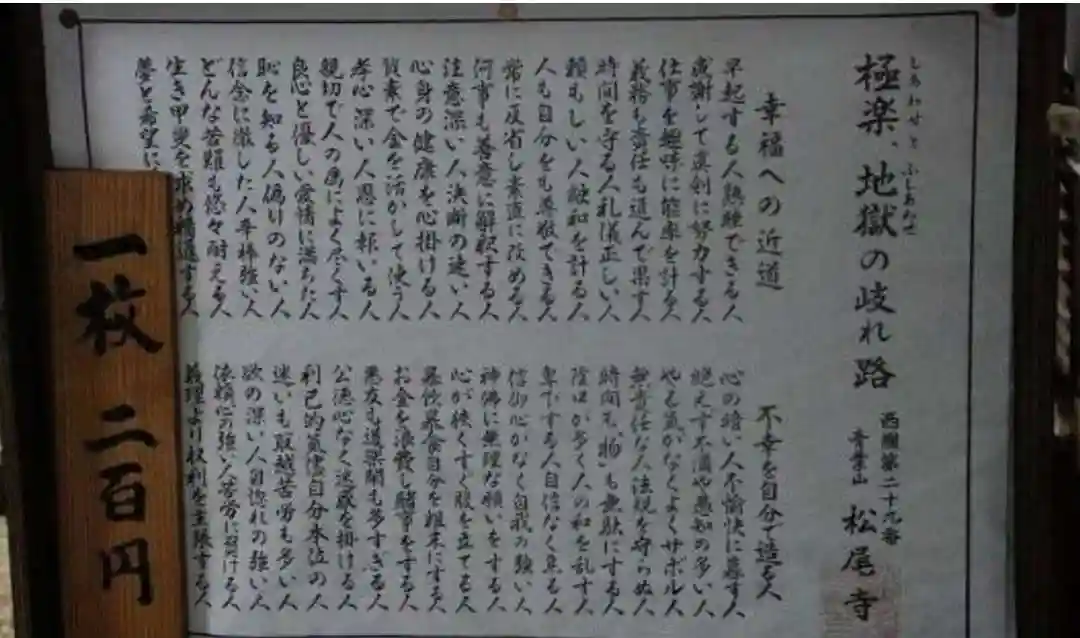 極楽、地獄の岐れ路
しあわせ と ふしあわせ
西國第二十九番
青葉山 松尾寺
幸福への近道
早起する人熟睡できる人
感謝して真剣に努力する人
仕事を趣味に能率を計る人
義務も責任も進んで果す人
時間を守る人礼儀正しい人
頼もしい人融和を計る人
人も自分をも尊敬できる人
常に反省し素直に改める人
何事も善意に解釈する人
注意深い人決断の速い人
心身の健康を心掛ける人
質素で金を活かして使う人
孝心深い人恩に報いる人
親切で人の為によく尽くす人
良心と優しい愛情に満ちた人
恥を知る人偽りのない人
信念に徹した人辛棒強い人
どんな苦難も悠々耐える人
生き甲斐を求め精進する人
夢と希望に
不幸を自分で造る人
心の暗い人不愉快に暮す人
絶えず不満や愚知の多い人
やる気がなくよくサボル人
無責任な人法規を守らぬ人
時間も“物”も無駄にする人
陰口が多く人の和を乱す人
卑下する人自信なく焦る人
信仰心がなく自我の強い人
神佛に無理な願いをする人
心が狭くすぐ腹を立てる人
暴飲暴食自分を粗末にする人
お金を浪費し賭事をする人
悪友も道楽間も多すぎる人
公徳心なく迷惑を掛ける人
利己的気儘自分本位の人
迷いも取越苦労も多い人
欲の深い人自惚れの強い人
依頼心の強い人苦労に負ける人
義理より权利を主張する人
一枚 二百円